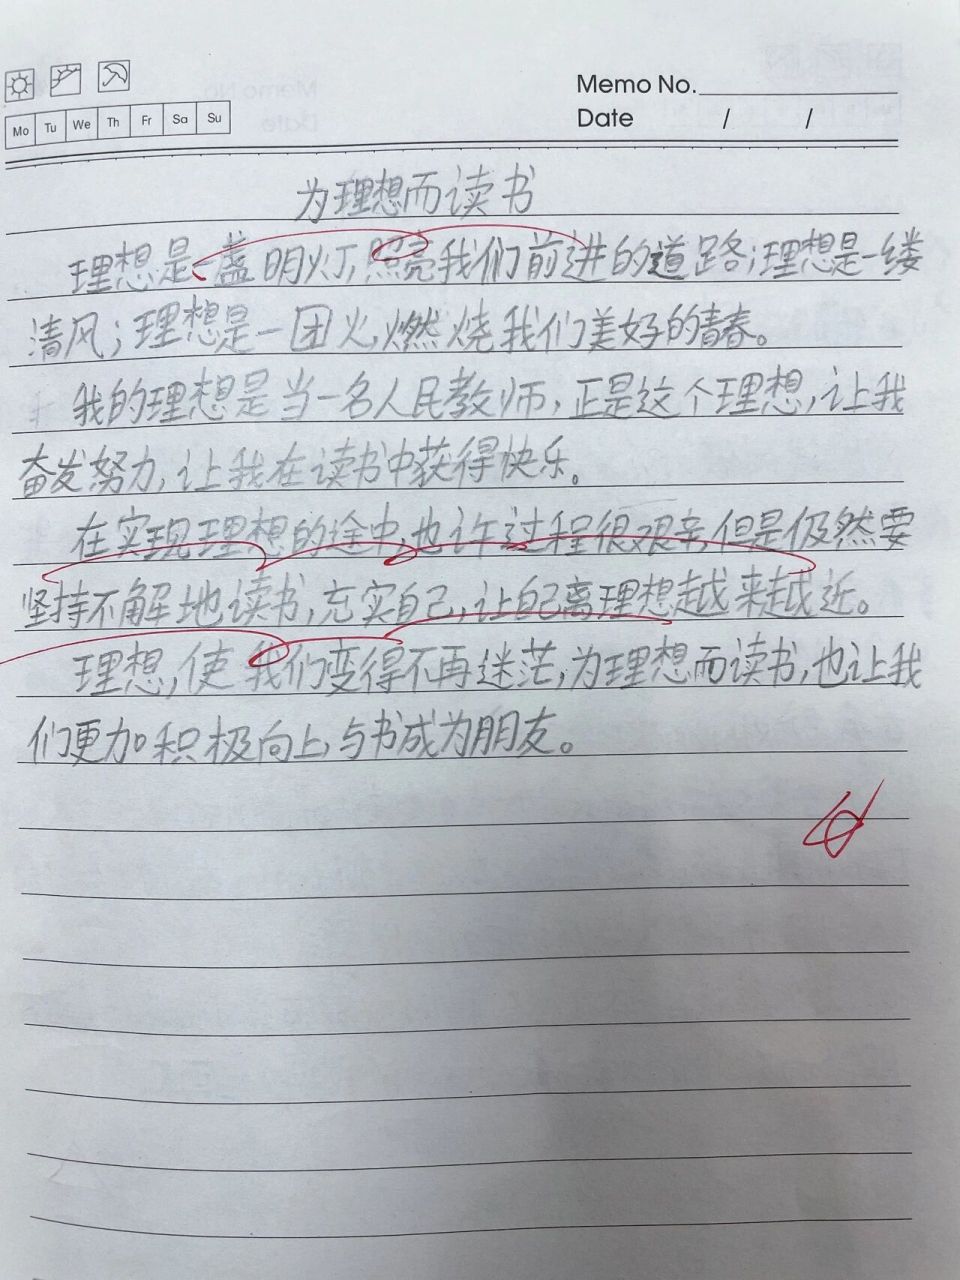 Memo No.
Mo Tu We Th Fr Sa Su
Date / /
为理想而读书
理想是一盏明灯,照亮我们前进的道路;理想是一缕
清风;理想是一团火,燃烧我们美好的青春。
我的理想是当一名人民教师,正是这个理想,让我
奋发努力,让我在读书中获得快乐。
在实现理想的途中,也许过程很艰辛,但是仍然要
坚持不解地读书,充实自己,让自己离理想越来越近。
理想,使我们变得不再迷茫,为理想而读书,也让我
们更加积极向上,与书成为朋友。